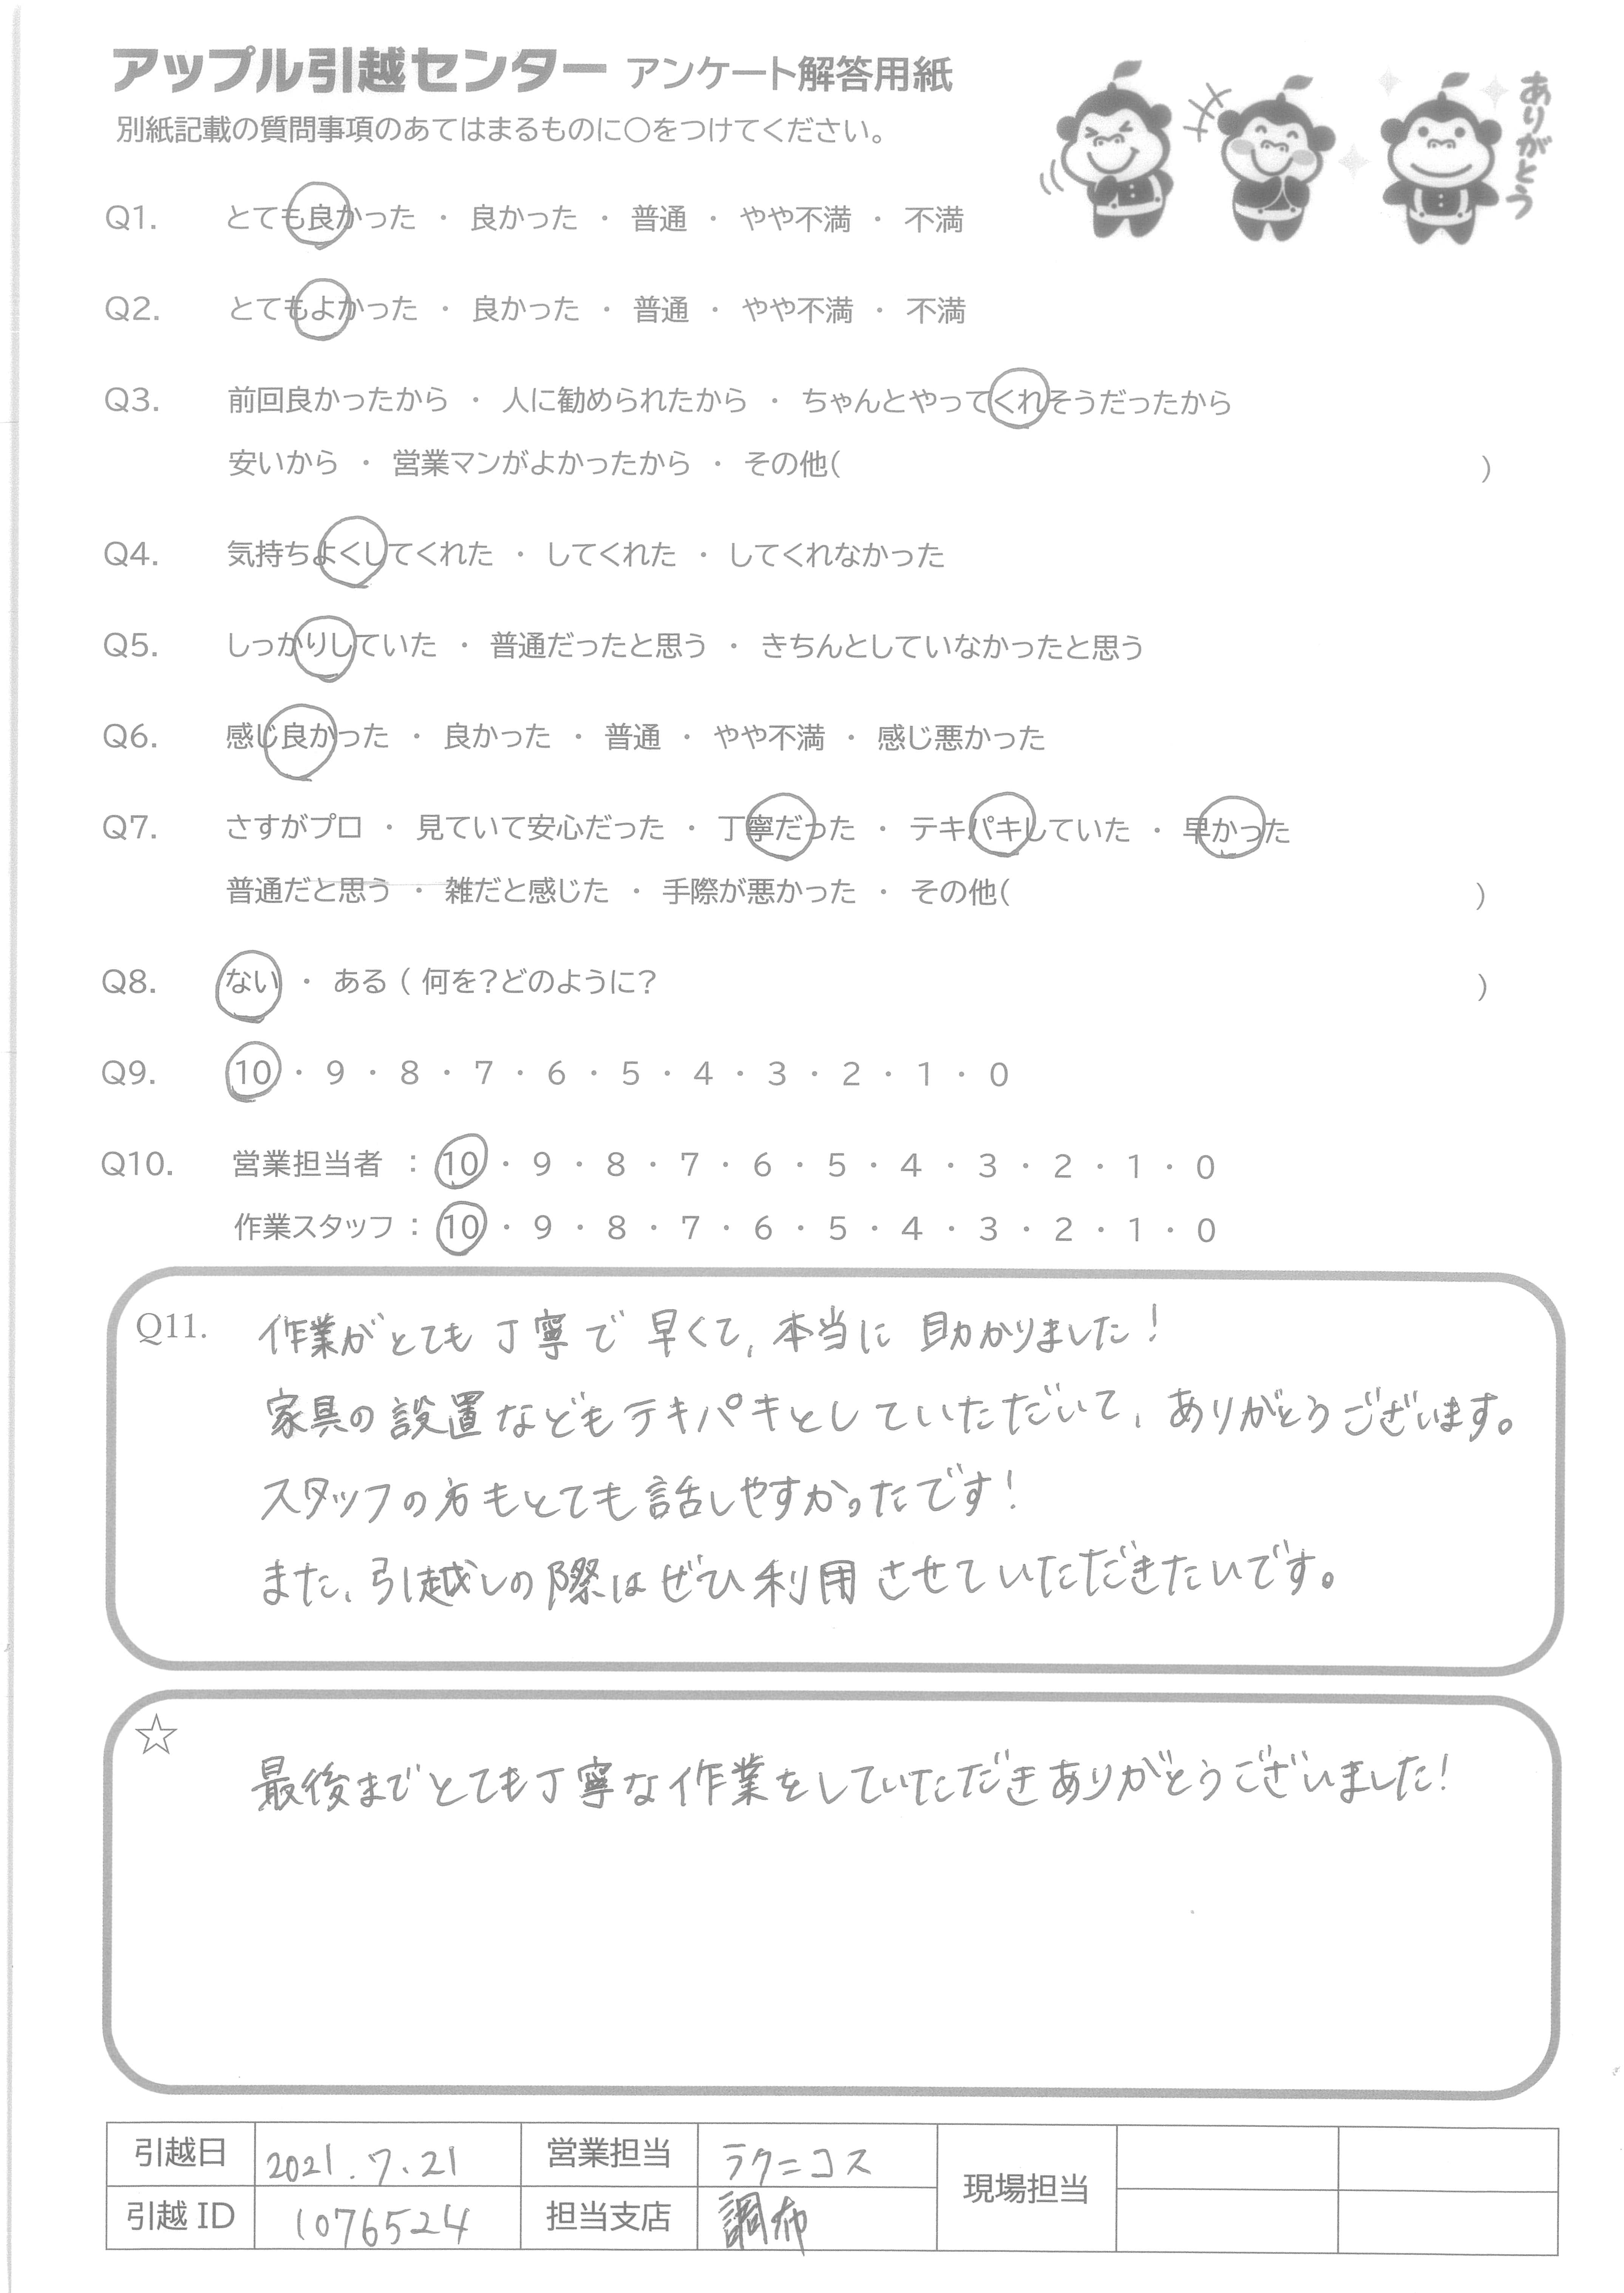 アップル引越センター アンケート解答用紙
ありがとう
別紙記載の質問事項のあてはまるものに〇をつけてください。
Q1. とても良かった ・ 良かった ・ 普通 ・ やや不満 ・ 不満
Q2. とてもよかった ・ 良かった ・ 普通 ・ やや不満 ・ 不満
Q3. 前回良かったから ・ 人に勧められたから ・ ちゃんとやってくれそうだったから
安いから ・ 営業マンがよかったから ・ その他( )
Q4. 気持ちよくしてくれた ・ してくれた ・ してくれなかった
Q5. しっかりしていた ・ 普通だったと思う ・ きちんとしていなかったと思う
Q6. 感じ良かった ・ 良かった ・ 普通 ・ やや不満 ・ 感じ悪かった
Q7. さすがプロ ・ 見ていて安心だった ・ 丁寧だった ・ テキパキしていた ・ 早かった
普通だと思う ・ 雑だと感じた ・ 手際が悪かった ・ その他( )
Q8. ない ・ ある ( 何を?どのように? )
Q9. 10 ・ 9 ・ 8 ・ 7 ・ 6 ・ 5 ・ 4 ・ 3 ・ 2 ・ 1 ・ 0
Q10. 営業担当者 : 10 ・ 9 ・ 8 ・ 7 ・ 6 ・ 5 ・ 4 ・ 3 ・ 2 ・ 1 ・ 0
作業スタッフ : 10 ・ 9 ・ 8 ・ 7 ・ 6 ・ 5 ・ 4 ・ 3 ・ 2 ・ 1 ・ 0
Q11. 作業がとても丁寧で早くて、本当に助かりました!
家具の設置などもテキパキとしていただいて、ありがとうございます。
スタッフの方もとても話しやすかったです!
また、引越しの際はぜひ利用させていただきたいです。
☆
最後までとても丁寧な作業をしていただきありがとうございました!
引越日 2021.7.21 営業担当 ラクニコス 現場担当
引越ID 1076524 担当支店 調布